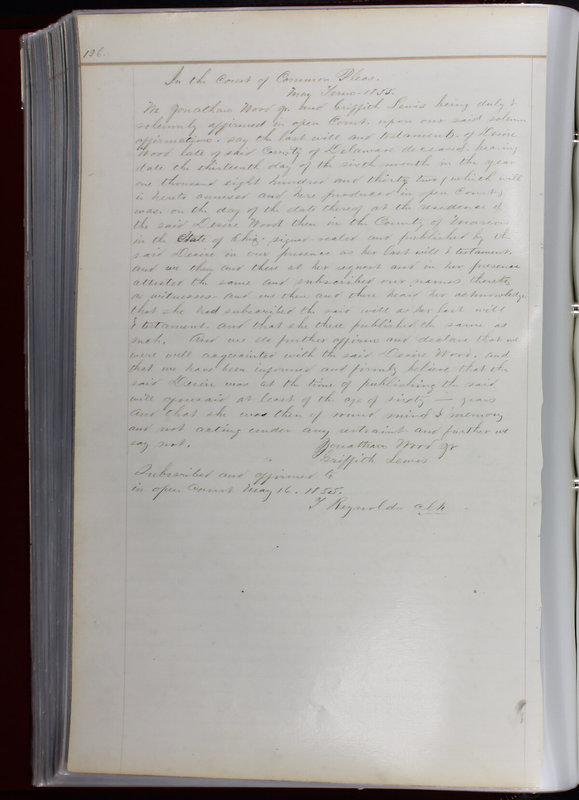 126.
In the Court of Common Pleas.
May Term 1835.
We Jonathan Wood Jr and Griffith Lewis being duly &
solemnly affirmed in open Court upon our said solemn
affirmations, say the last will and testament of Desire
Wood late of said County of Delaware deceased, bearing
date the thirteenth day of the sixth month in the year
one thousand eight hundred and thirty two (which will
is hereto annexed and here produced in open Court)
was on the day of the date thereof at the residence of
the said Desire Wood then in the County of Marion
in the State of Ohio, signed sealed and published by the
said Desire in our presence as her last will & testament
and we then and there at her request and in her presence
attested the same and subscribed our names thereto
as witnesses and we then and there heard her acknowledge
that she had subscribed the said will as her last will
& testament and that she there published the same as
such. And we do further affirm and declare that we
were well acquainted with the said Desire Wood, and
that we have been informed and firmly believe that the
said Desire was at the time of publishing the said
will aforesaid at least of the age of sixty — years
And that she was then of sound mind & memory
and not acting under any restraint and further we
say not.
Jonathan Wood Jr
Griffith Lewis
Subscribed and affirmed to
in open Court May 16. 1835.
T Reynolds clk